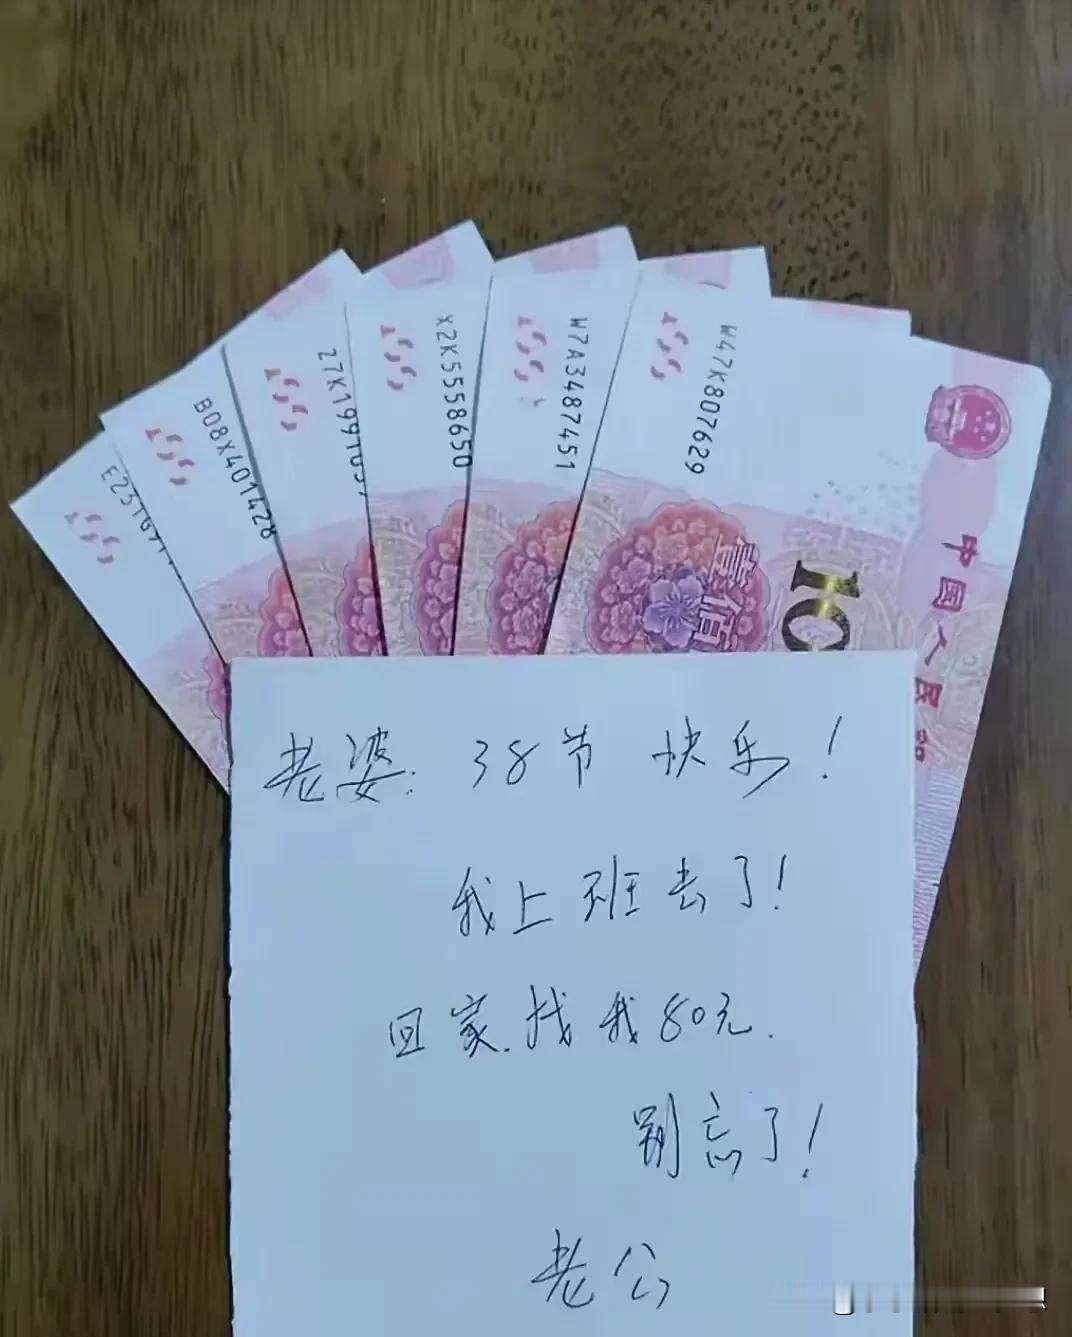 E23T
B08X401428
27K199
X2K5558650
W7A3487451
W47K807629
壹佰
10
中国人民
老婆：38节快乐！
我上班去了！
回家.找我80元.
别忘了！
老公